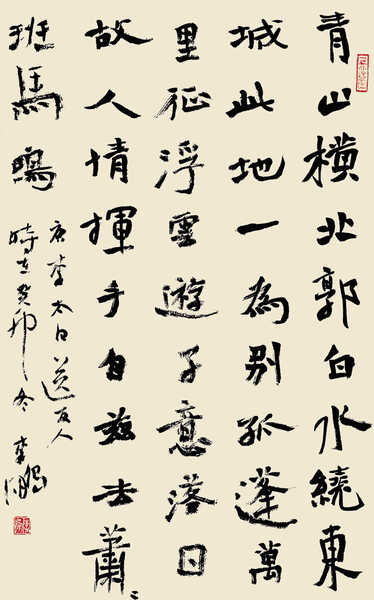 青山橫北郭白水繞東
城此地一為別孤蓬萬
里征浮雲遊子意落日
故人情揮手自茲去蕭〻
班馬鳴
唐李太白送友人
時在癸卯冬李